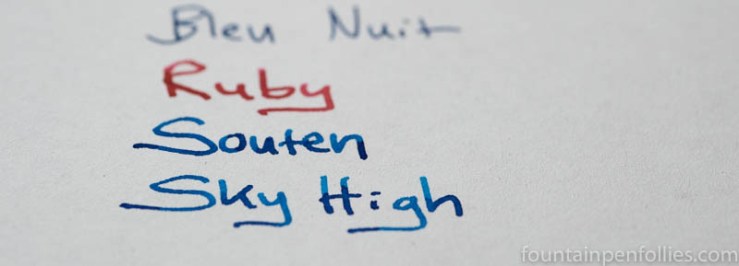 Bleu Nuit
Ruby
Souten
Sky High
fountainpenfollies.com